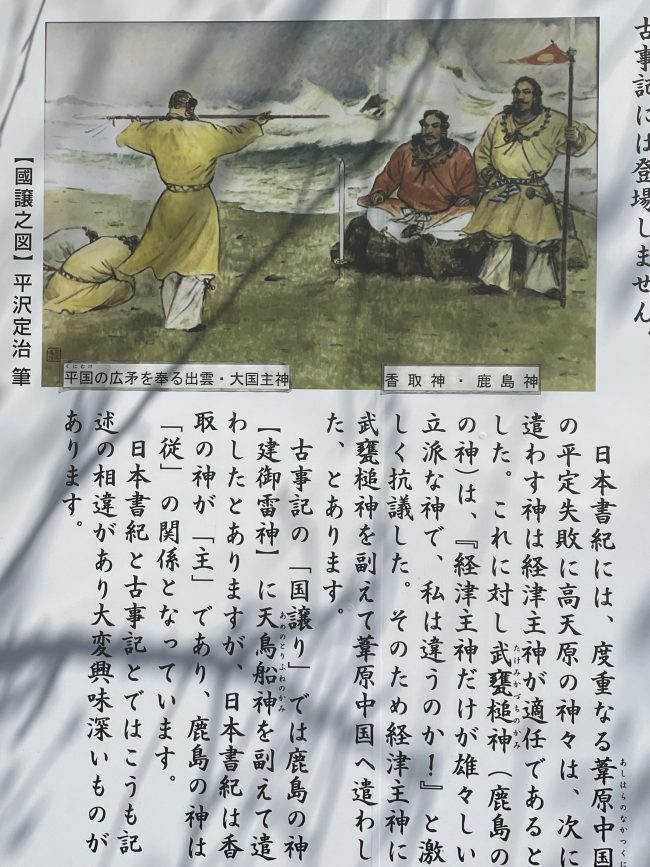 古事記には登場しません。
【國譲之図】平沢定治 筆
くにむけ
平国の広矛を奉る出雲・大国主神
香取神・鹿島神
日本書紀には、度重なる葦原中国
あしはらのなかつくに
の平定失敗に高天原の神々は、次に
遣わす神は経津主神が適任であると
した。これに対し武甕槌神（鹿島の
たけみかづちのかみ
の神）は、『経津主神だけが雄々しい
立派な神で、私は違うのか！』と激
しく抗議した。そのため経津主神に
武甕槌神を副えて葦原中国へ遣わし
た、とあります。
古事記の「国譲り」では鹿島の神
【建御雷神】に天鳥船神を副えて遣
あめのとりふねのかみ
わしたとありますが、日本書紀は香
取の神が「主」であり、鹿島の神は
「従」の関係となっています。
日本書紀と古事記とではこうも記
述の相違があり大変興味深いものが
あります。